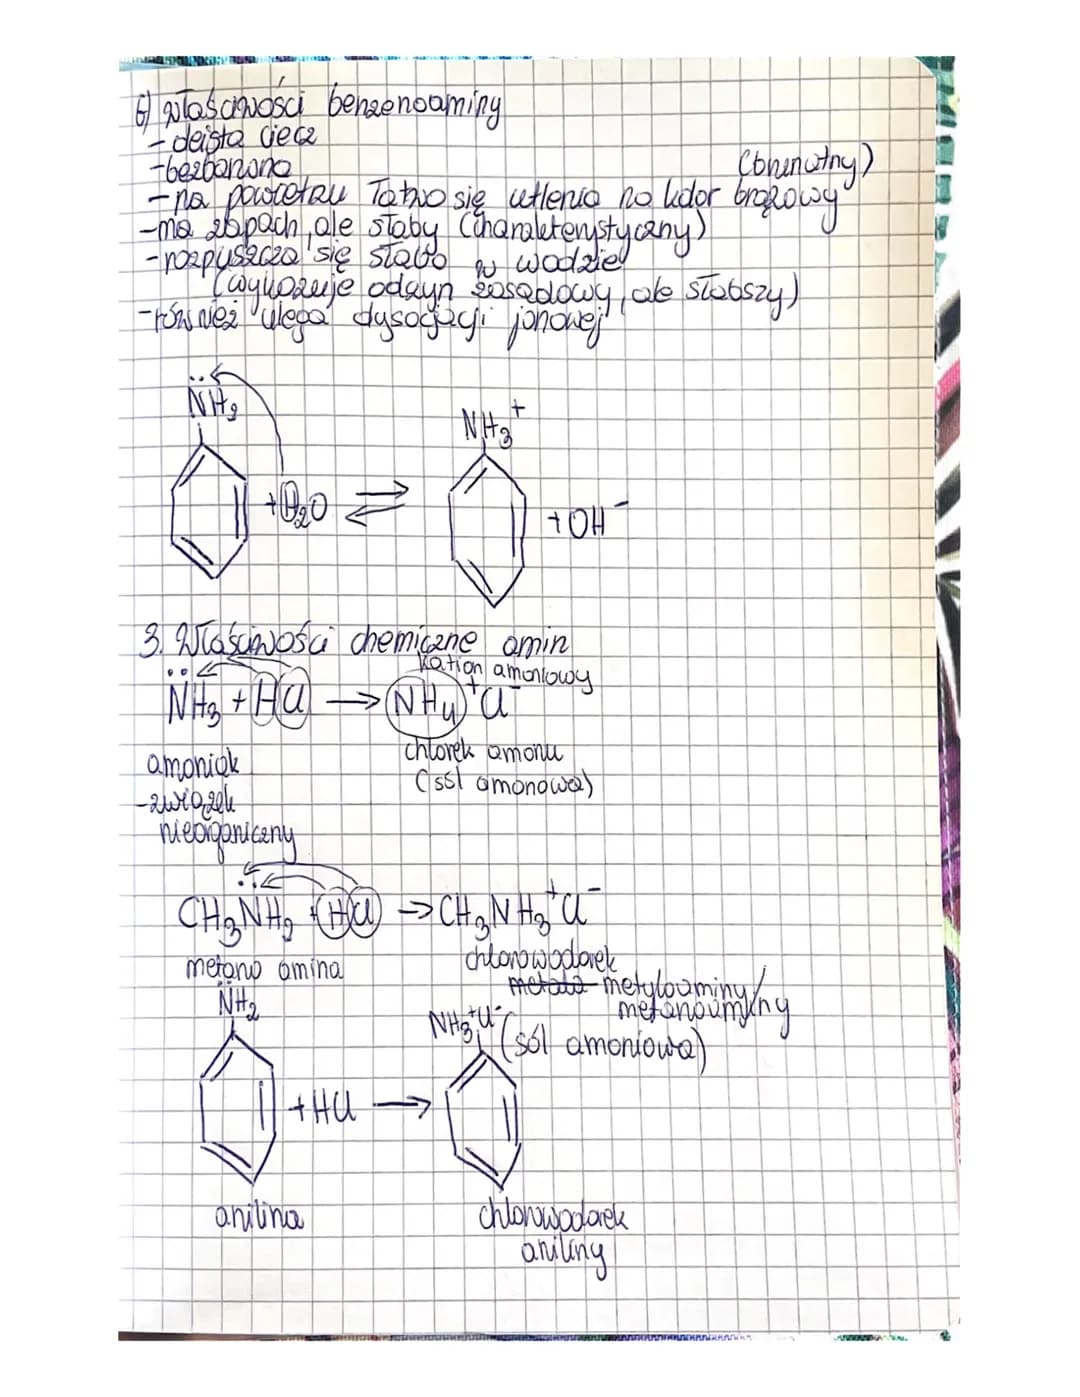 6) właściwości benzenoaminy
- oleista ciecz
- bezbarwna
(brunatny)
- na powietrzu łatwo się utlenia na kolor brązowy
- ma zapach, ale słaby (charakterystyczny)
- rozpuszcza się słabo w wodzie
(wykazuje odczyn zasadowy, ale słabszy)
- również ulega dysocjacji jonowej
NH2
NH3+
+ H2O ⇌
+ OH-
3. Właściwości chemiczne amin
kation amoniowy
NH3 + HCl → NH4+Cl-
amoniak
chlorek amonu
(sól amonowa)
- związek
nieorganiczny
CH3NH2 + HCl → CH3NH3+Cl-
metanoamina
chlorowodorek
metyloaminy/
metanoaminy
NH2
NH3+Cl-
(sól amoniowa)
+ HCl →
anilina
chlorowodorek
aniliny